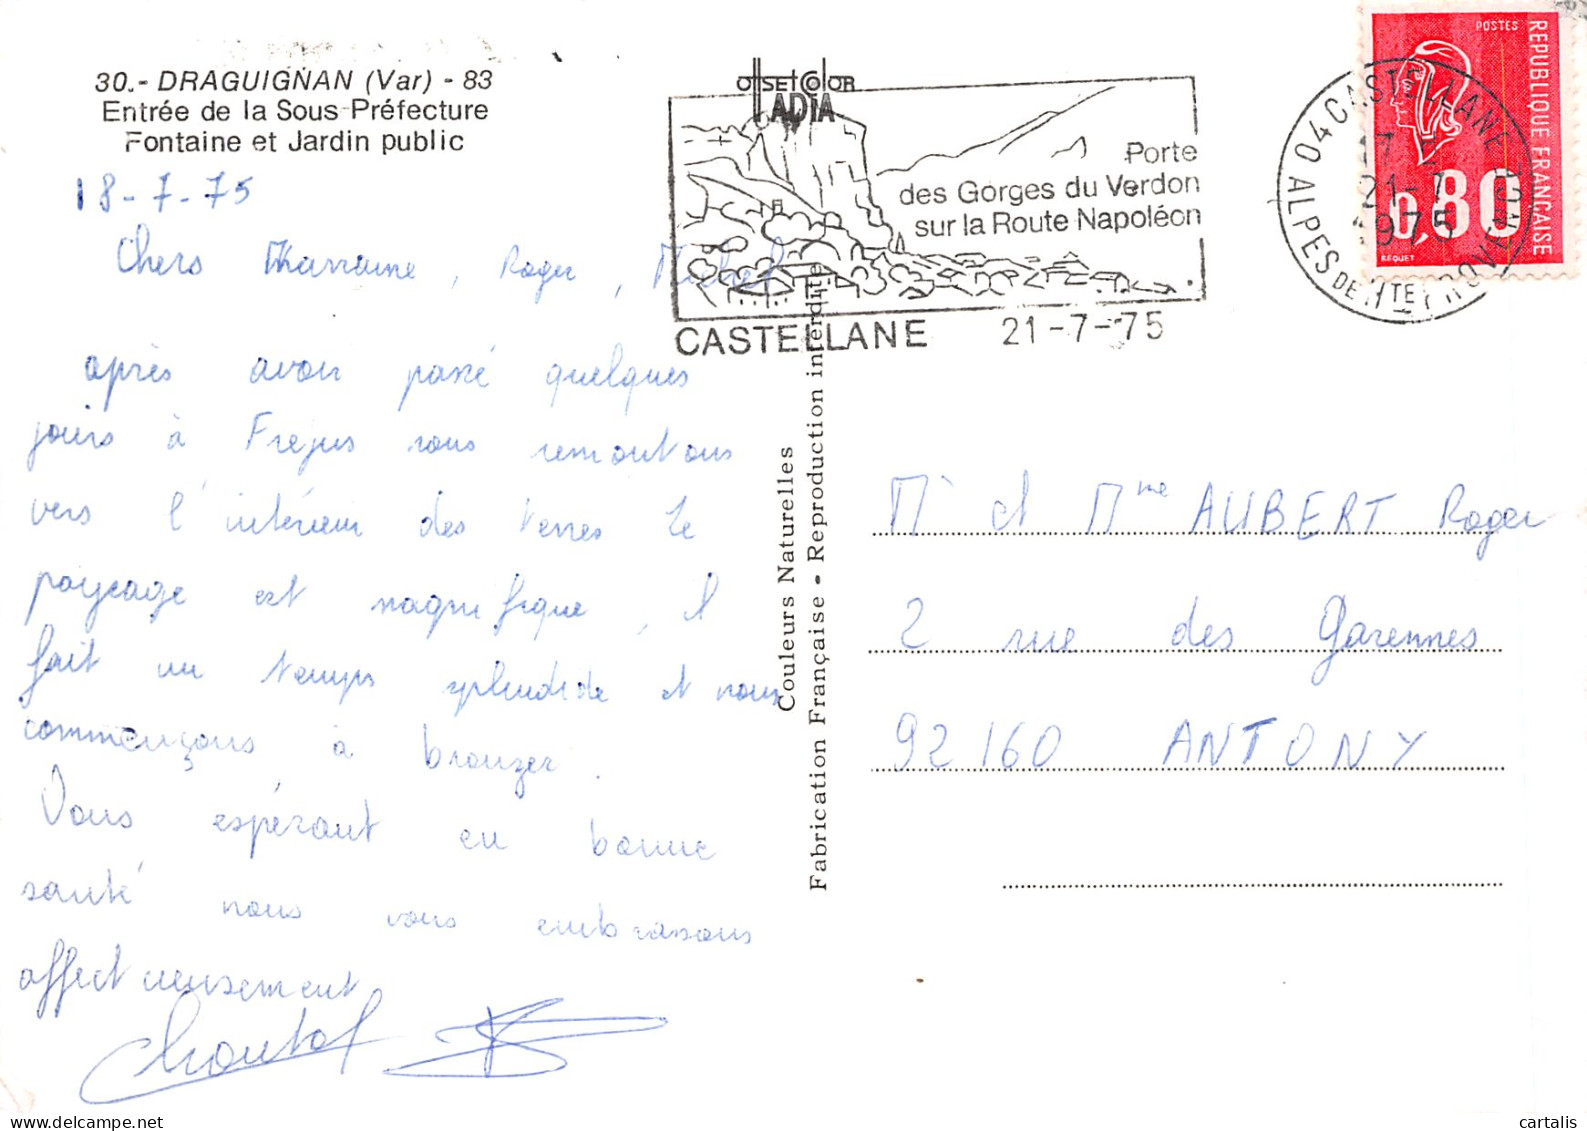 30.- DRAGUIGNAN (Var) - 83
Entrée de la Sous-Préfecture
Fontaine et Jardin public
18-7-75
Chers Marraine, Roger, Michel
après avoir passé quelques
jours à Frejus nous remontons
vers l'intérieur des terres Le
paysage est magnifique, il
fait un temps splendide et nous
commençons à bronzer.
Vous espérant en bonne
santé nous vous embrassons
affectueusement
Chantal
offset color
ADIA
Porte
des Gorges du Verdon
sur la Route Napoléon
CASTELLANE 21-7-75
Couleurs Naturelles
Fabrication Française • Reproduction interdite
04 CASTELLANE
17
21-7
1975
ALPES DE HTE PROVENCE
POSTES
REPUBLIQUE FRANÇAISE
0,80
BEQUET
Mr et Mme AUBERT Roger
2 rue des Garennes
92160 ANTONY
cartalis